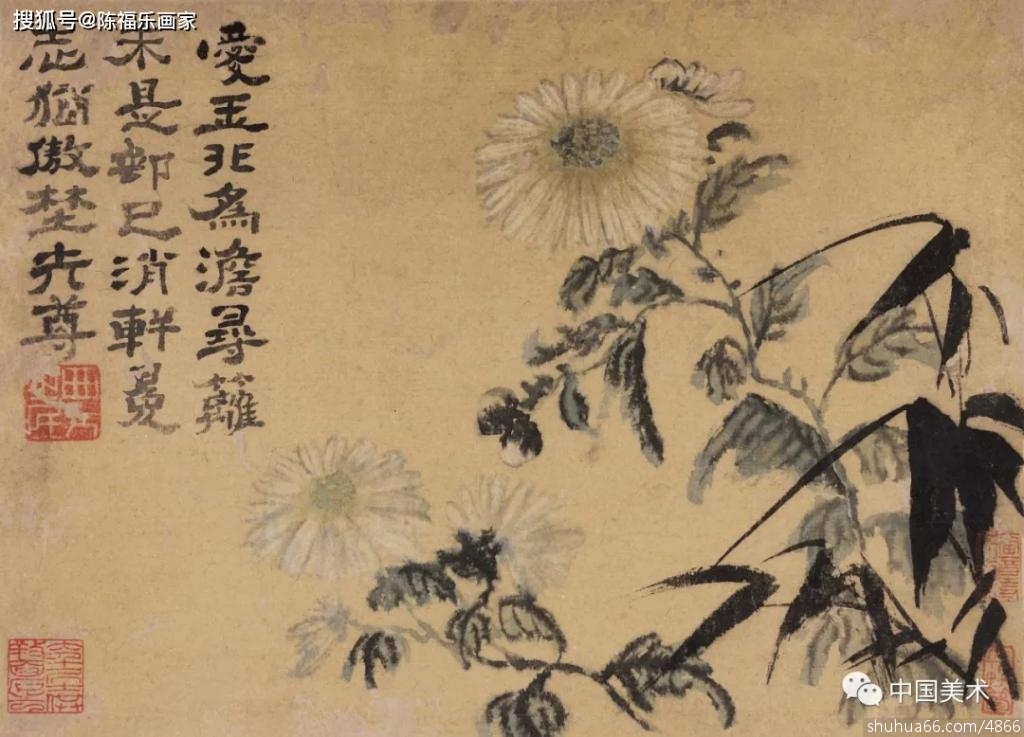 搜狐号@陈福乐画家
愛玉非為澹尋蘺
未是邨已消軒冕
志猶傲埜尊
中国美术
shuhua66.com/4866